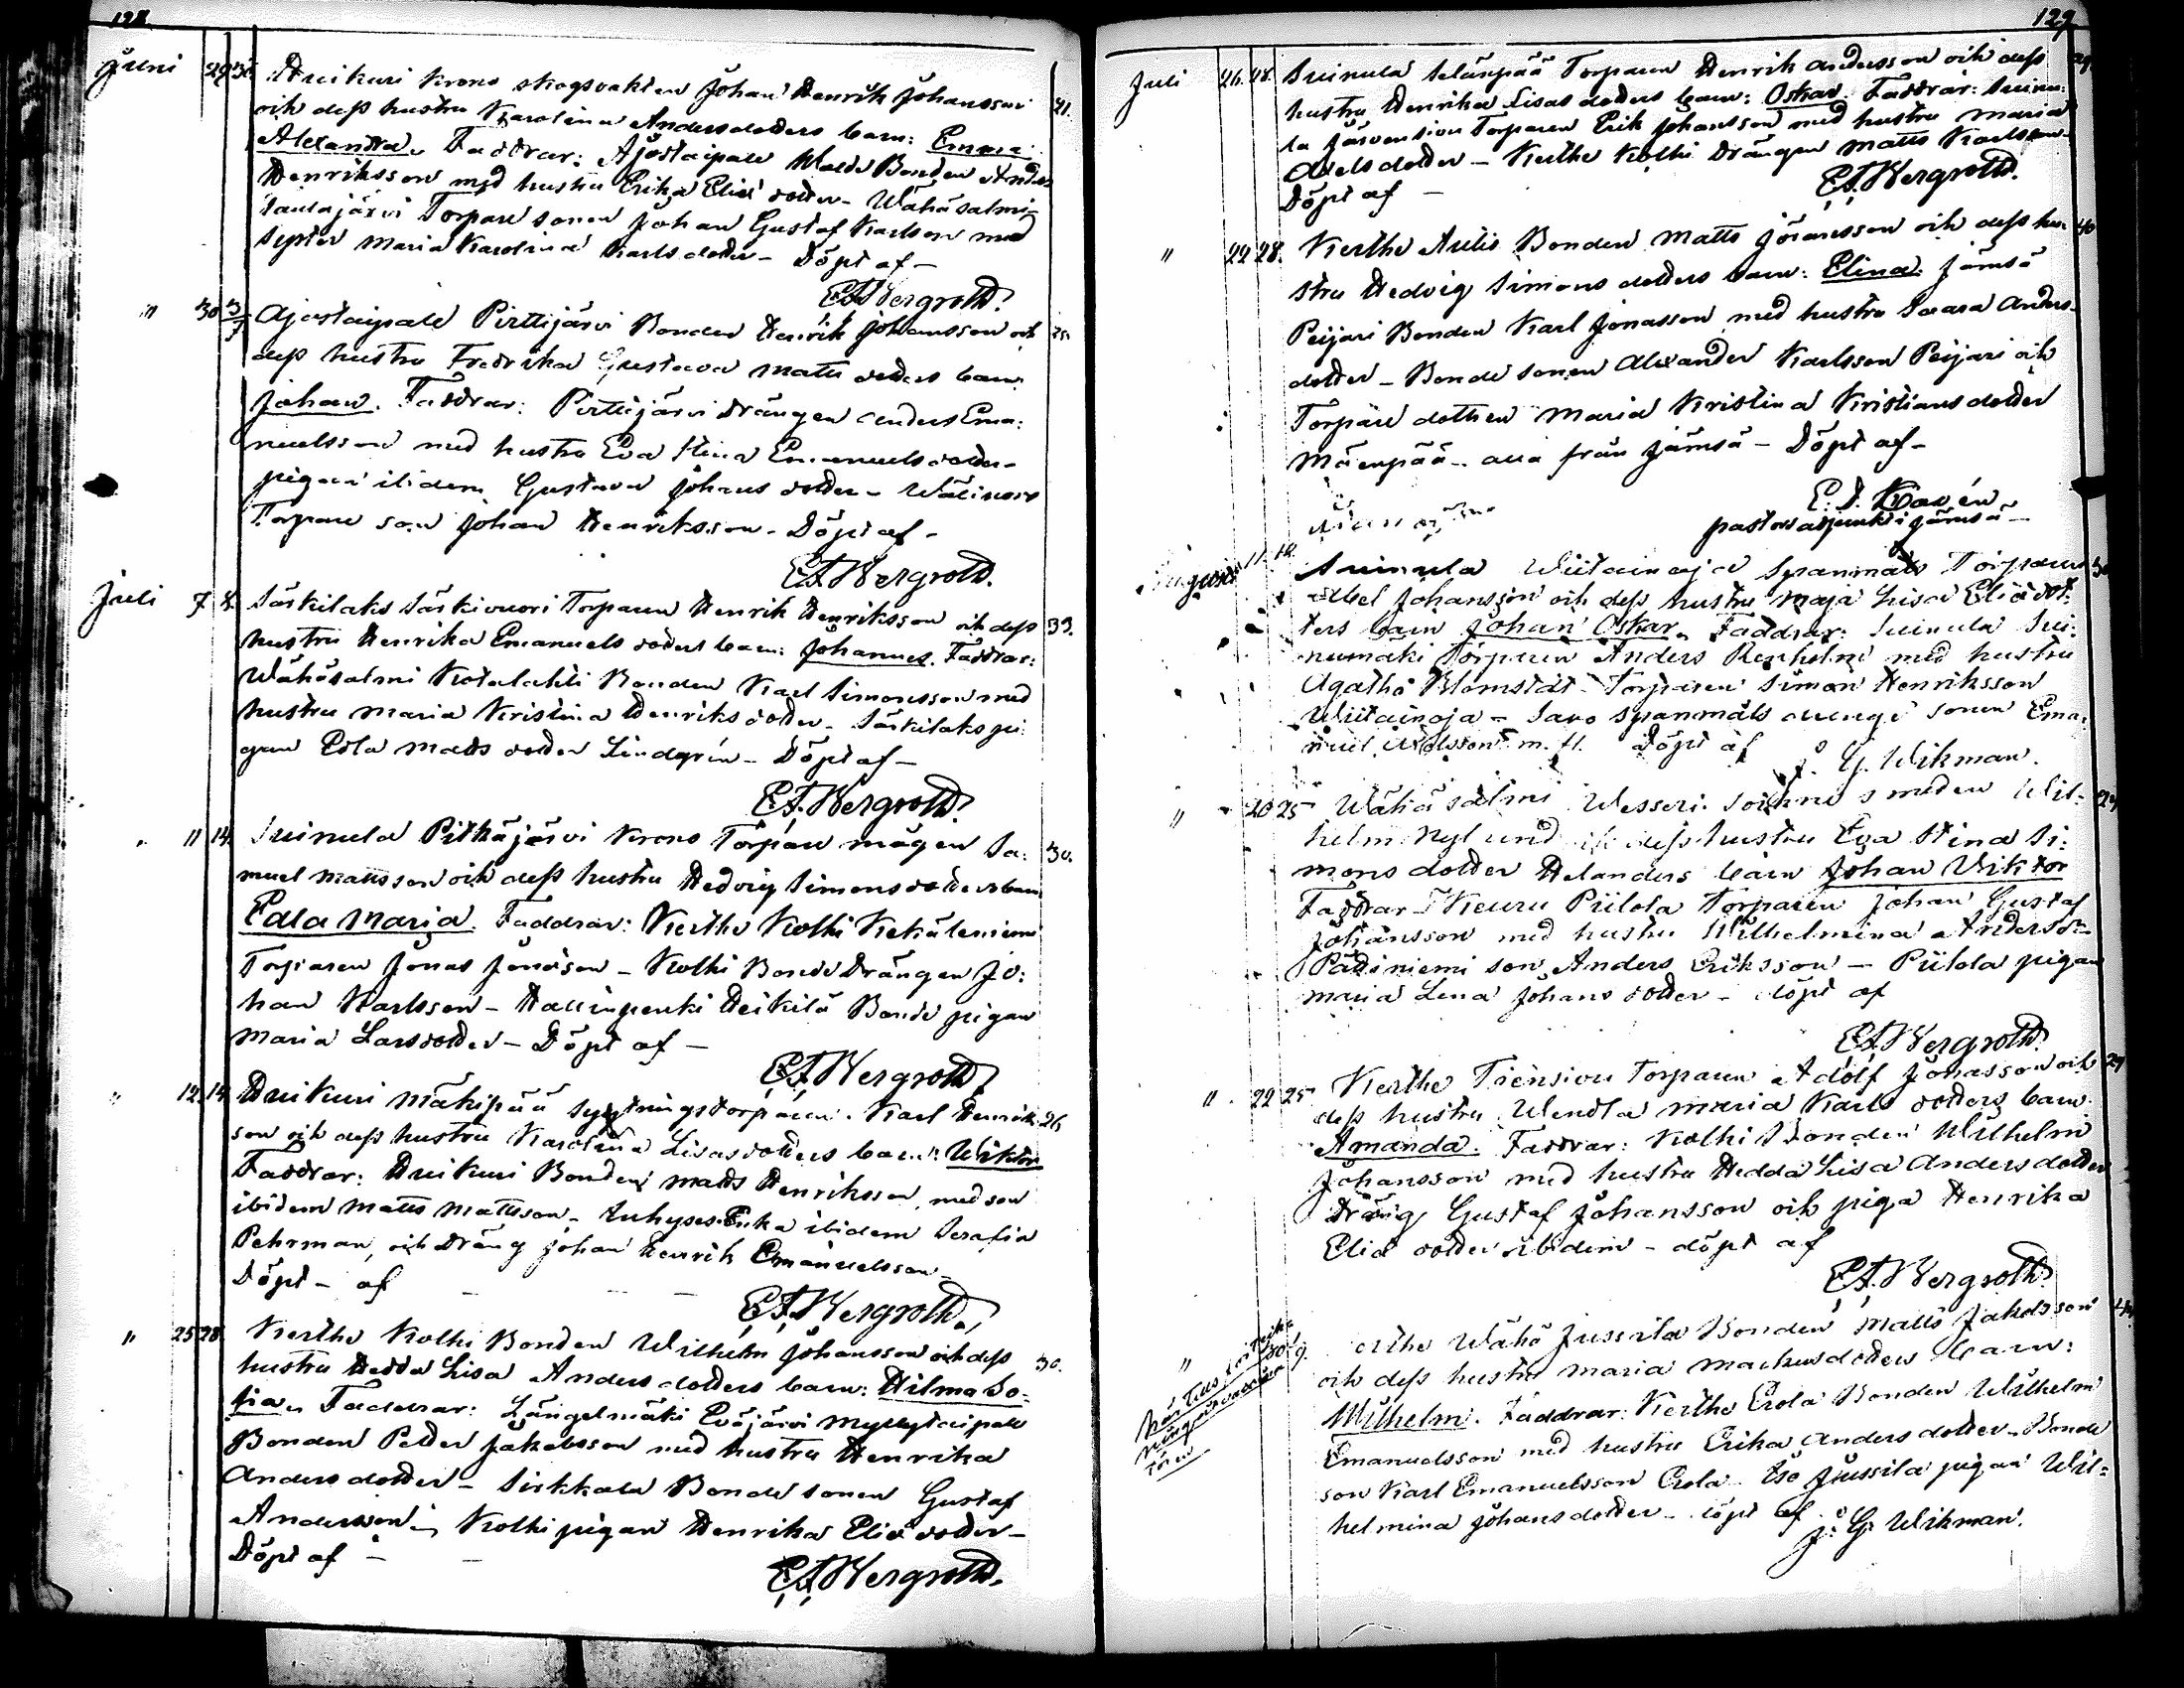 128.
Juni 29 30. Huikuri krono skogsvakten Johan Henrik Johansson 41.
och dess hustru Karolina Andersdotters barn: Emma
Alexandra. Faddrar: Ajostaipale Bonden Anders
Henriksson med hustru Erika Eliä dotter - Wähäsalmi
Torpare sonen Johan Gustaf Karlsson med
syster Maria Karolina Karls dotter - Döpt af -
E.F. Bergroth.
" 30 3/7 Ajostaipale Pirttijärvi Bonden Henrik Johansson och
dess hustru Fredrika Gustava Matts dotters barn
Johan. Faddrar: Pirttijärvi drängen Anders Ema:
nuelsson med hustru Eva Stina Emanuels dotter -
pigan ibidem Gustava Johans dotter -
Torpare son Johan Henriksson - Döpt af -
E.F. Bergroth.
Juli 7 8. Särkilaks Särkivuori Torparen Henrik Henriksson och dess 33.
hustru Henrika Emanuels dotters barn: Johannes. Faddrar:
Wähäsalmi Kotalahti Bonden Karl Simonsson med
hustru Maria Kristina Henriks dotter - Särkilaks pi:
gan Edla Matts dotter Lindgrén - Döpt af -
E.F. Bergroth.
" 11 14. Suinula Pitkäjärvi Krono Torpare mågen Sa: 30.
muel Mattsson och dess hustru Hedvig Simonsdotters barn
Edla Maria. Faddrar: Kertte Kolhi Kekäleniemi
Torparen Jonas Jonasson - Kolhi Bonde Drängen Jo:
han Karlsson - Hallinpenki Heikilä Bonde pigan
Maria Larsdotter - Döpt af -
E.F. Bergroth.
" 12. 14. Huikuri Mäkipää sytningstorparen Karl Henrik 26
son och dess hustru Karolina Lisasdotters barn: Wiktor
Faddrar: Huikuri Bonden Matts Henriksson, med son
ibidem Matts Mattsson - Inhyses Enka ibidem Serafia
Pehrman, och Dräng Johan Henrik Emanuelsson -
Döpt - af
E.F. Bergroth.
" 25 28. Kertte Kolhi Bonden Wilhelm Johansson och dess 30.
hustru Hedda Lisa Anders dotters barn: Hilma So:
fia. Faddrar: Längelmäki Eväjärvi Myllytaipale
Bonden Petter Jakobsson med hustru Henrika
Anders dotter - Sirkkala Bonde sonen Gustaf
Andersson - Kolhi pigan Henrika Eliä dotter -
Döpt af -
E.F. Bergroth.
129
Juli 26. 28. Suinula Selänpää Torparen Henrik Andersson och dess 29.
hustru Henrika Lisas dotters barn: Oskar. Faddrar: Suinu:
la Järvensivu Torparen Erik Johansson med hustru Maria
Abels dotter - Kertte Kolhi Drängen Matts Karlsson -
Döpt af -
E.F. Bergroth.
" 22 28. Kertte Aulis Bonden Matts Jöransson och dess hu: 40
stru Hedvig Simons dotters barn: Elina. Jämsä
Peijari Bonden Karl Jonasson med hustru Anders
dotter - Bonde sonen Alexander Karlsson Peijari och
Torpare dottren Maria Kristina Kristians dotter
Mäenpää - alla från Jämsä - Döpt af -
pastorsadjunkt i Jämsä -
Augusti 11. 12. Suinula Wiitainoja Spanmåls Torparen 30
Abel Johansson och dess hustru Maja Lisa Eliä dot:
ters barn Johan Oskar. Faddrar: Suinula Sui:
numäki Torparen Anders Renholm med hustru
Agatha Blomstät - Torparen Simon Henriksson
Wiitainoja - Savo spanmåls sonen Ema:
nuel m. fl. Döpt af
J. G. Wikman.
" 20 25 Wähäsalmi Wesseri sockne smeden Wil: 29
helm Nylund och dess hustru Eva Stina Si:
mons dotter Helanders barn Johan Viktor
Faddrar - Keuru Piilola Torparen Johan Gustaf
Johansson med hustru Wilhelmina
niemi son Anders Eriksson - Piilola pigan
Maria Lena Johans dotter - döpt af
E.F. Bergroth.
" 22 25 Kertte Tiensivu Torparen Adolf Jonasson och 29
dess hustru Wendla Maria Karls dotters barn
Amanda. Faddrar: Kolhi Bonden Wilhelm
Johansson med hustru Hedda Lisa Anders dotter
Dräng Gustaf Johansson och piga Henrika
Eliä dotter ibidem - döpt af
E.F. Bergroth.
" 30. 9. Kertte Wähä Jussila Bonden Matts Jakobsson 44
och dess hustru Maria Markus dotters barn:
Wilhelm. Faddrar: Kertte Erola Bonden Wilhelm
Emanuelsson med hustru Erika Anders dotter - Bonde
son Karl Emanuelsson Erola - Iso Jussila pigan Wil:
helmina Johansdotter - döpt af
J. G. Wikman.